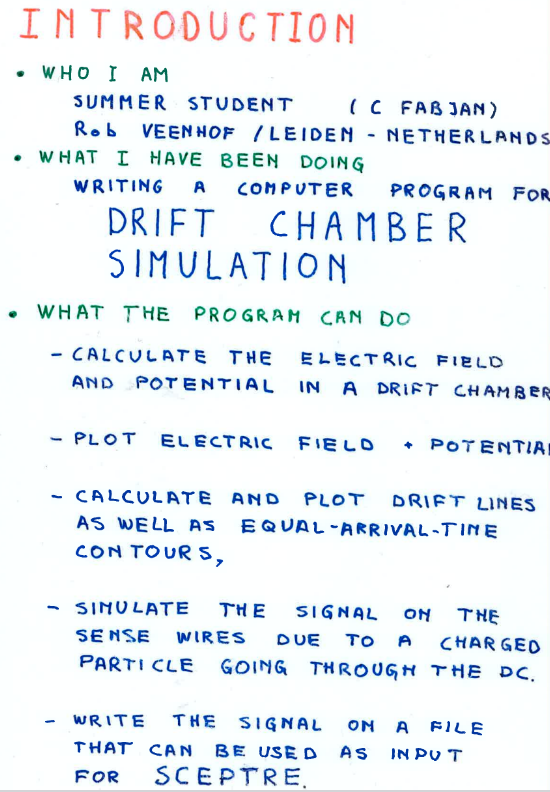 INTRODUCTION
• WHO I AM
SUMMER STUDENT ( C FABJAN)
Rob VEENHOF / LEIDEN - NETHERLANDS
• WHAT I HAVE BEEN DOING
WRITING A COMPUTER PROGRAM FOR
DRIFT CHAMBER
SIMULATION
• WHAT THE PROGRAM CAN DO
- CALCULATE THE ELECTRIC FIELD
AND POTENTIAL IN A DRIFT CHAMBER
- PLOT ELECTRIC FIELD + POTENTIA
- CALCULATE AND PLOT DRIFT LINES
AS WELL AS EQUAL-ARRIVAL-TIME
CONTOURS,
- SIMULATE THE SIGNAL ON THE
SENSE WIRES DUE TO A CHARGED
PARTICLE GOING THROUGH THE DC.
- WRITE THE SIGNAL ON A FILE
THAT CAN BE USED AS INPUT
FOR SCEPTRE.